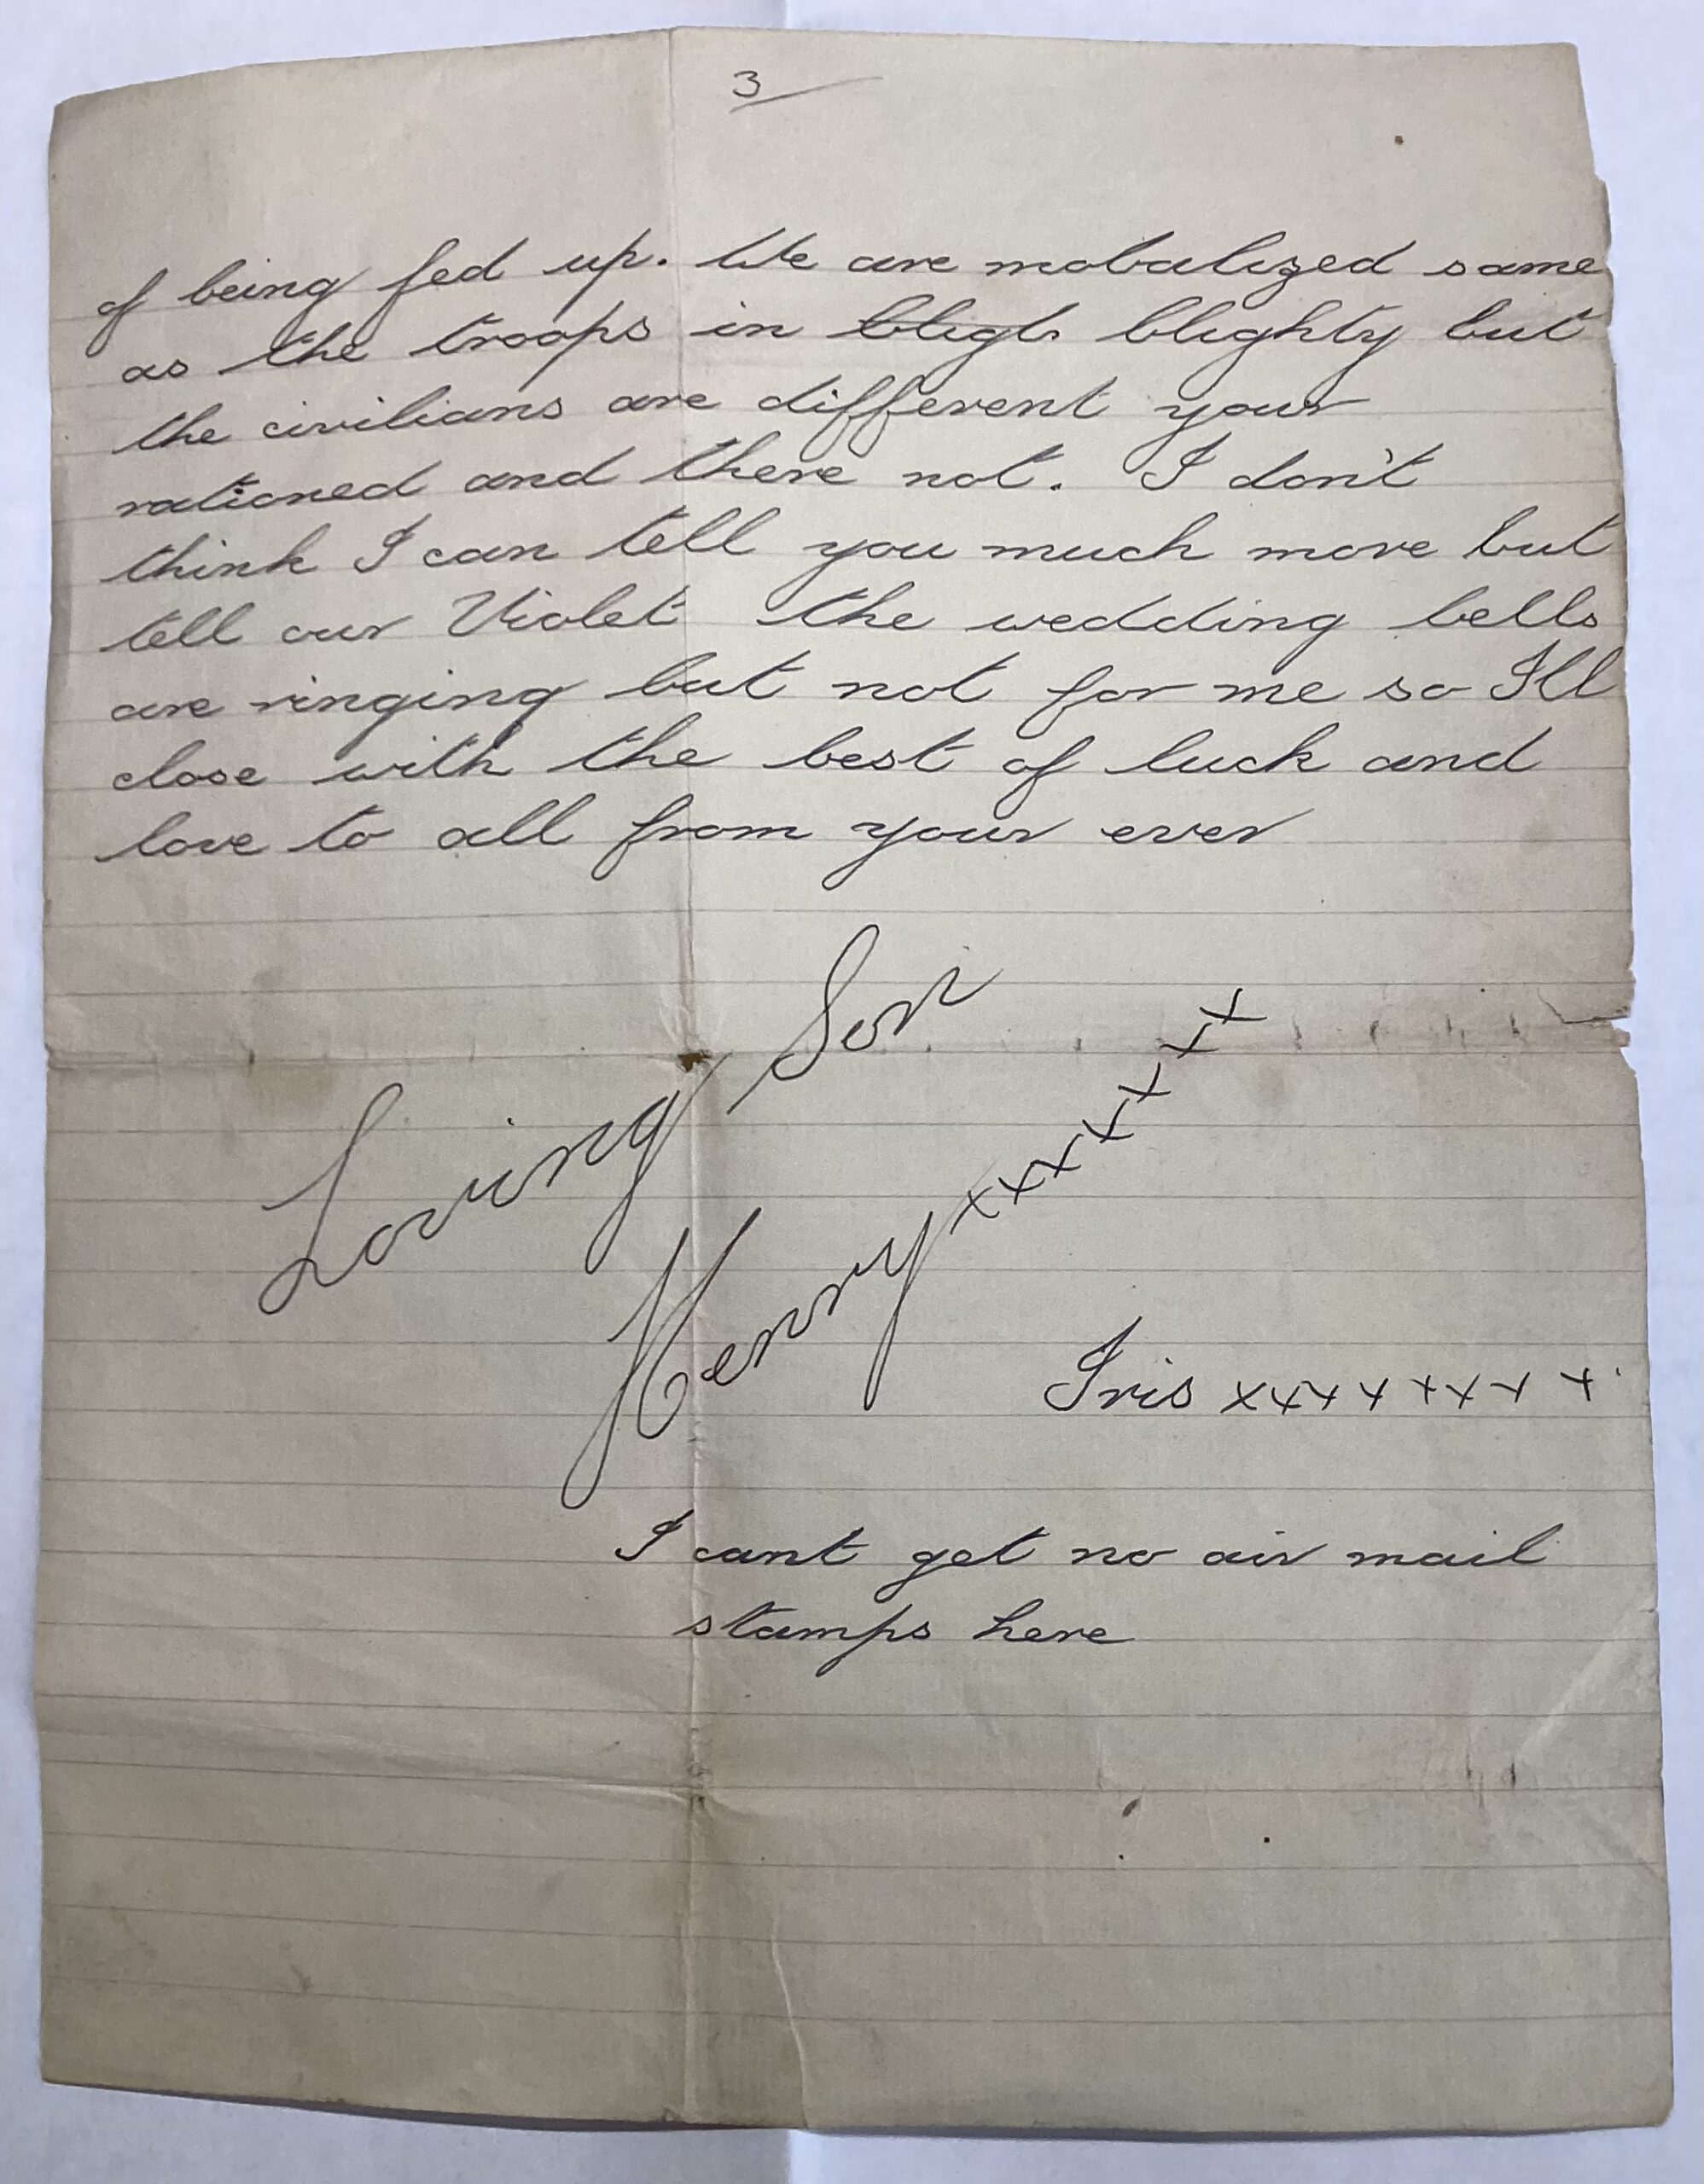 3
of being fed up. We are mobalized same
as the troops in bligh blighty but
the civilians are different your
rationed and there not. I don't
think I can tell you much more but
tell our Violet the wedding bells
are ringing but not for me so I'll
close with the best of luck and
love to all from your ever
Loving Son
Henry xxxxxxxx
Iris xxxxxxxx
I cant get no air mail
stamps here